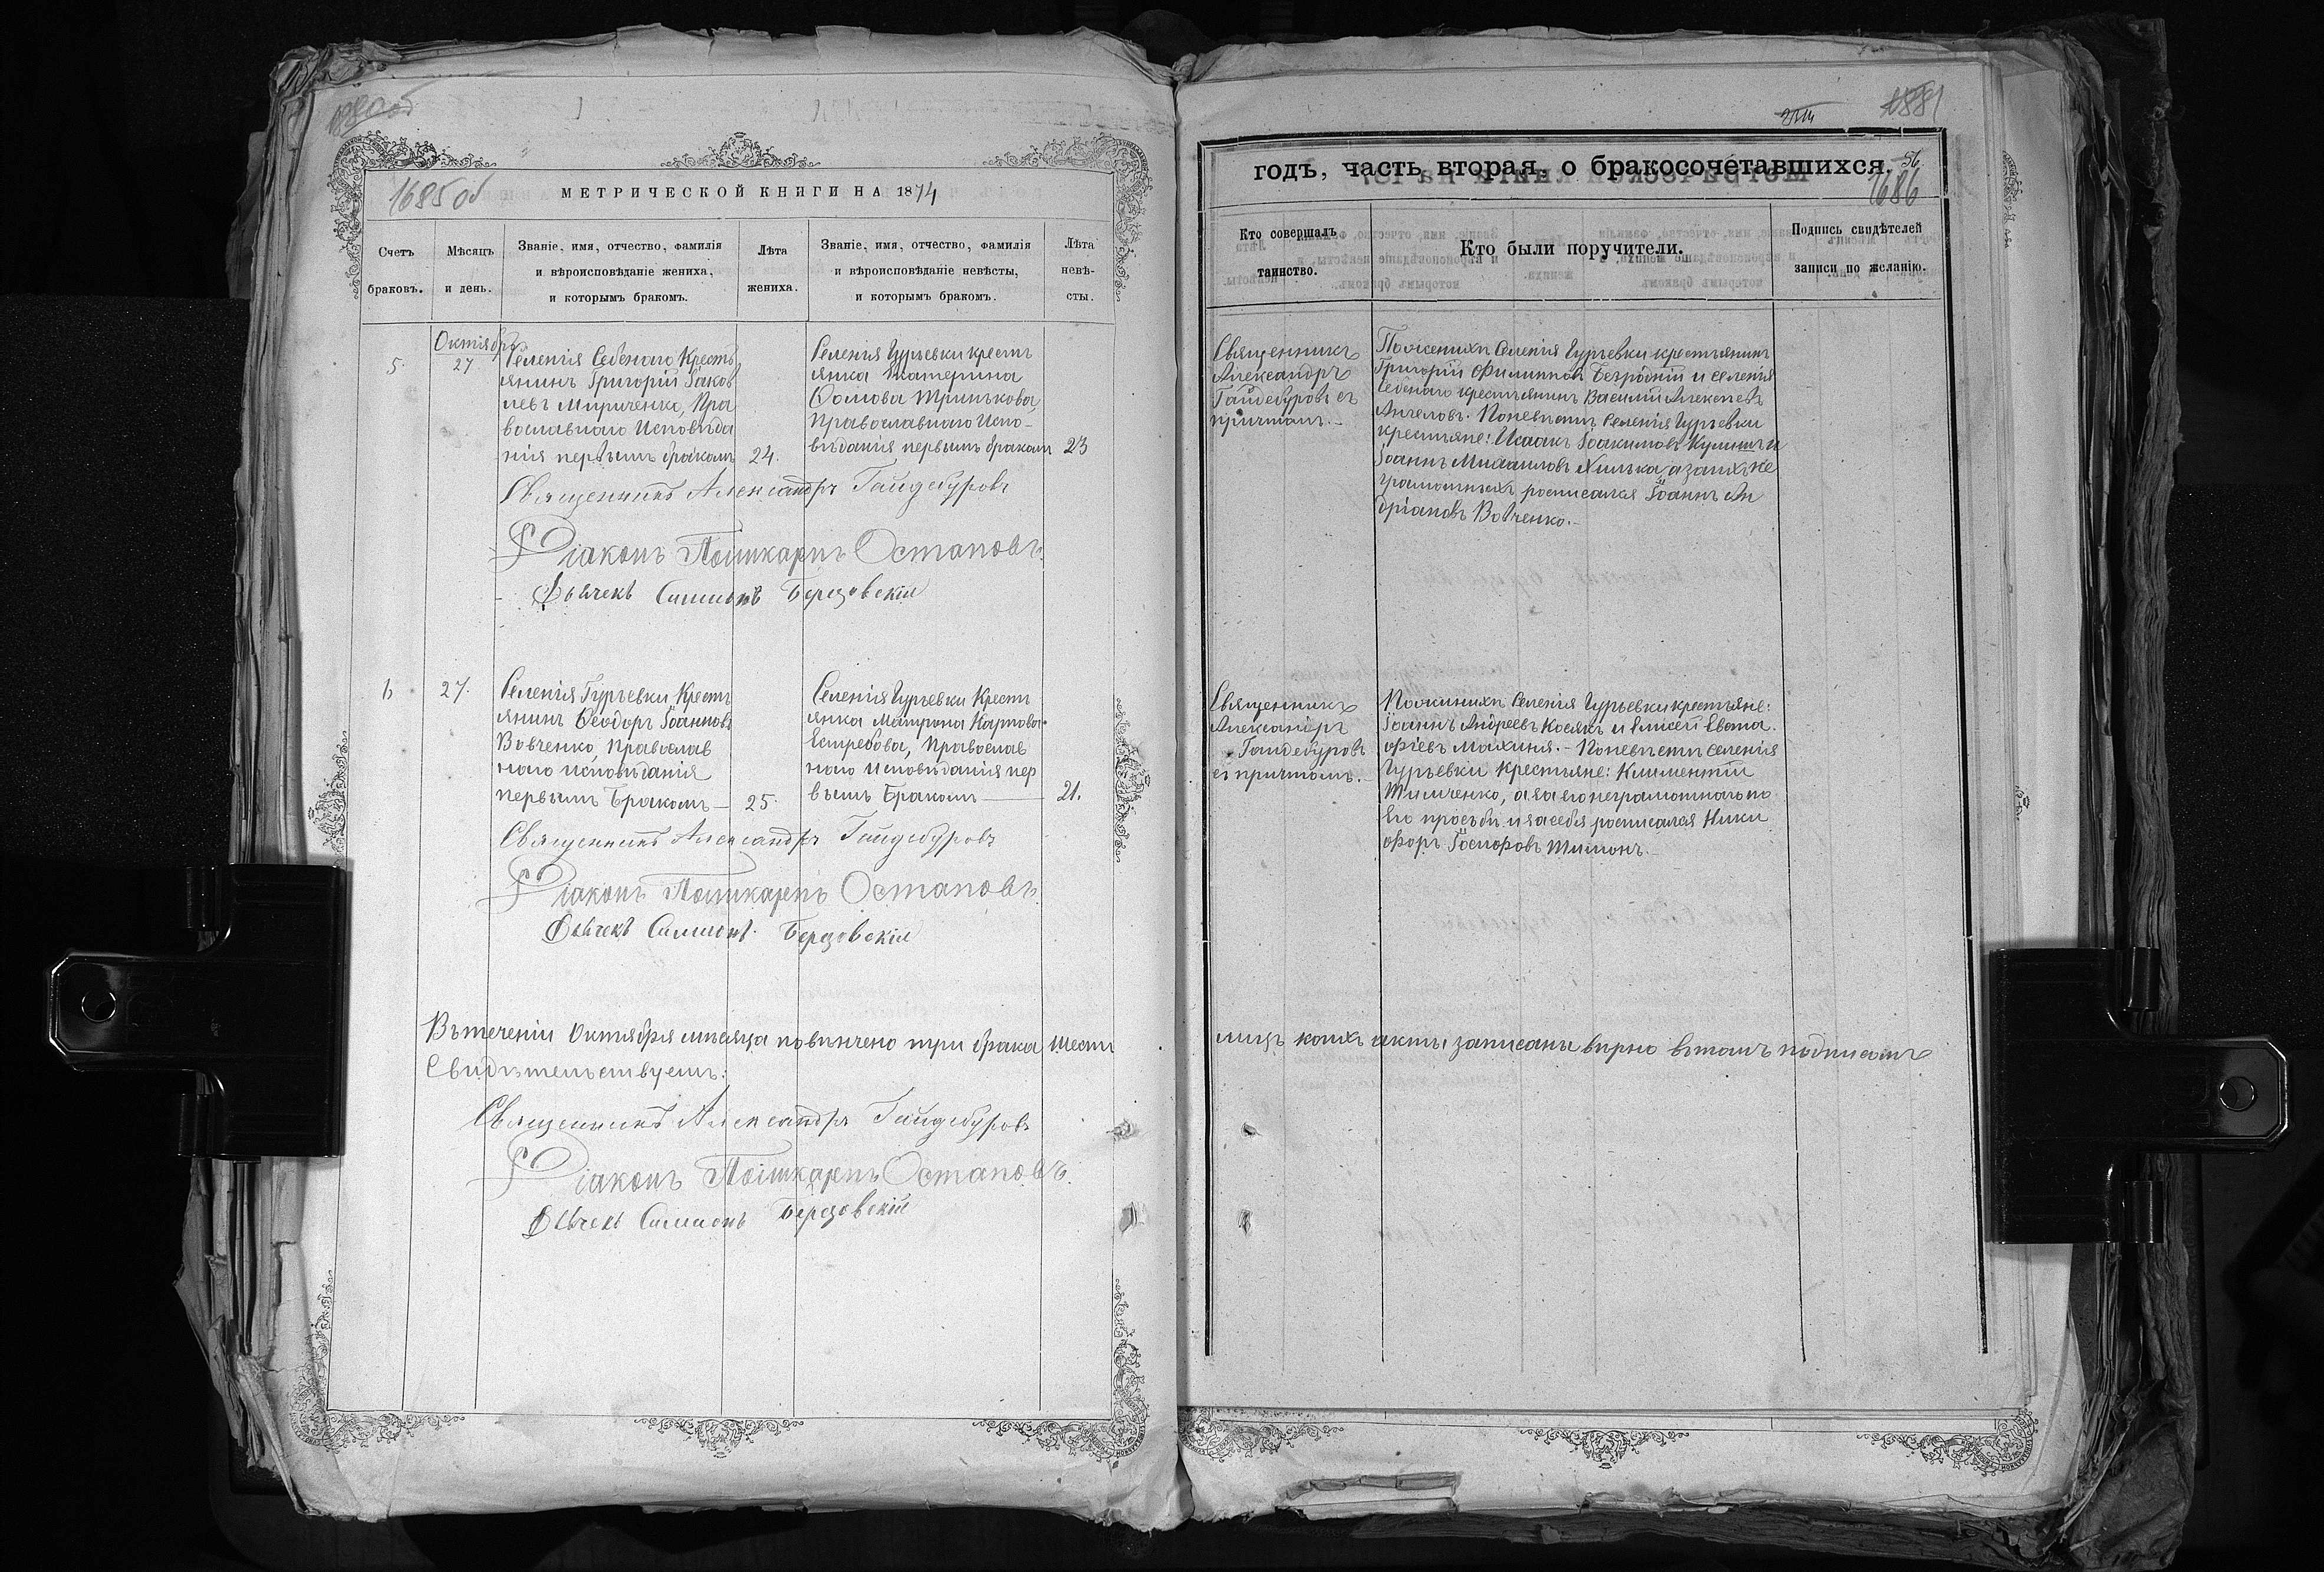 1685 об
МЕТРИЧЕСКОЙ КНИГИ НА 1874
Счетъ браковъ.
Мѣсяцъ и день.
Званіе, имя, отчество, фамилія
и вѣроисповѣданіе жениха,
и которымъ бракомъ.
Лѣта
жениха.
Званіе, имя, отчество, фамилія
и вѣроисповѣданіе невѣсты,
и которымъ бракомъ.
Лѣта
невѣ-
сты.
5.
Октября
27
Селенія Себеного Кресть
янинъ Григорій Іаков
левъ Мириченко, Пра
вославнаго Исповѣда
нія первымъ бракомъ
24.
Селенія Гурьевки крестъ
янка Екатерина
Ѳомова Тринькова,
Православнаго Испо-
вѣданія первымъ бракомъ
23
Священникъ Александръ Гайдебуровъ
Діаконъ Поликарпъ Остаповъ.
Дьячекъ Симеонъ Березовскій
6
27.
Селенія Гурьевки Кресть
янинъ Ѳеодоръ Іоанновъ
Вовченко, православ
наго исповѣданія
первымъ Бракомъ —
25.
Селенія Гурьевки Кресть
янка Матрона Карпова
Ястребова, Православ
наго Исповѣданія пер
вымъ Бракомъ —
21.
Священникъ Александръ Гайдебуровъ
Діаконъ Поликарпъ Остаповъ.
Дьячекъ Симеонъ Березовскій
Въ теченіи Октября мѣсяца повѣнчено три брака шесть
Свидѣтельствуемъ:
Священникъ Александръ Гайдебуровъ
Діаконъ Поликарпъ Остаповъ.
Дьячекъ Симеонъ Березовскій
1881
годъ, часть вторая, о бракосочетавшихся.
56
1686
Кто совершалъ
таинство.
Кто были поручители.
Подпись свидѣтелей
записи по желанію.
Священникъ
Александръ
Гайдебуровъ съ
причтомъ.—
По женихѣ Селенія Гурьевки крестьянинъ
Григорій Филипповъ Безродній и селенія
Себеного крестьянинъ Василій Алексѣевъ
Ангеловъ. По невѣстѣ Селенія Гурьевки
крестьяне: Исаакъ Іоакимовъ Кулинич и
Іоаннъ Михаиловъ Хилька, а за ихъ не
грамотныхъ росписался Іоаннъ Ан
дріановъ Вовченко.—
Священникъ
Александръ
Гайдебуровъ
съ причтомъ.
По женихѣ Селенія Гурьевки крестьяне:
Іоаннъ Андреевъ Косякъ и Елисей Евста
фіевъ Махиня.— По невѣстѣ селенія
Гурьевки Крестьяне: Климентій
Тимченко, а за его неграмотнаго по
его просьбѣ и за себя росписался Ники
форъ Іосифовъ Тимонъ.—
лицъ коихъ акты записаны вѣрно въ томъ подписомъ